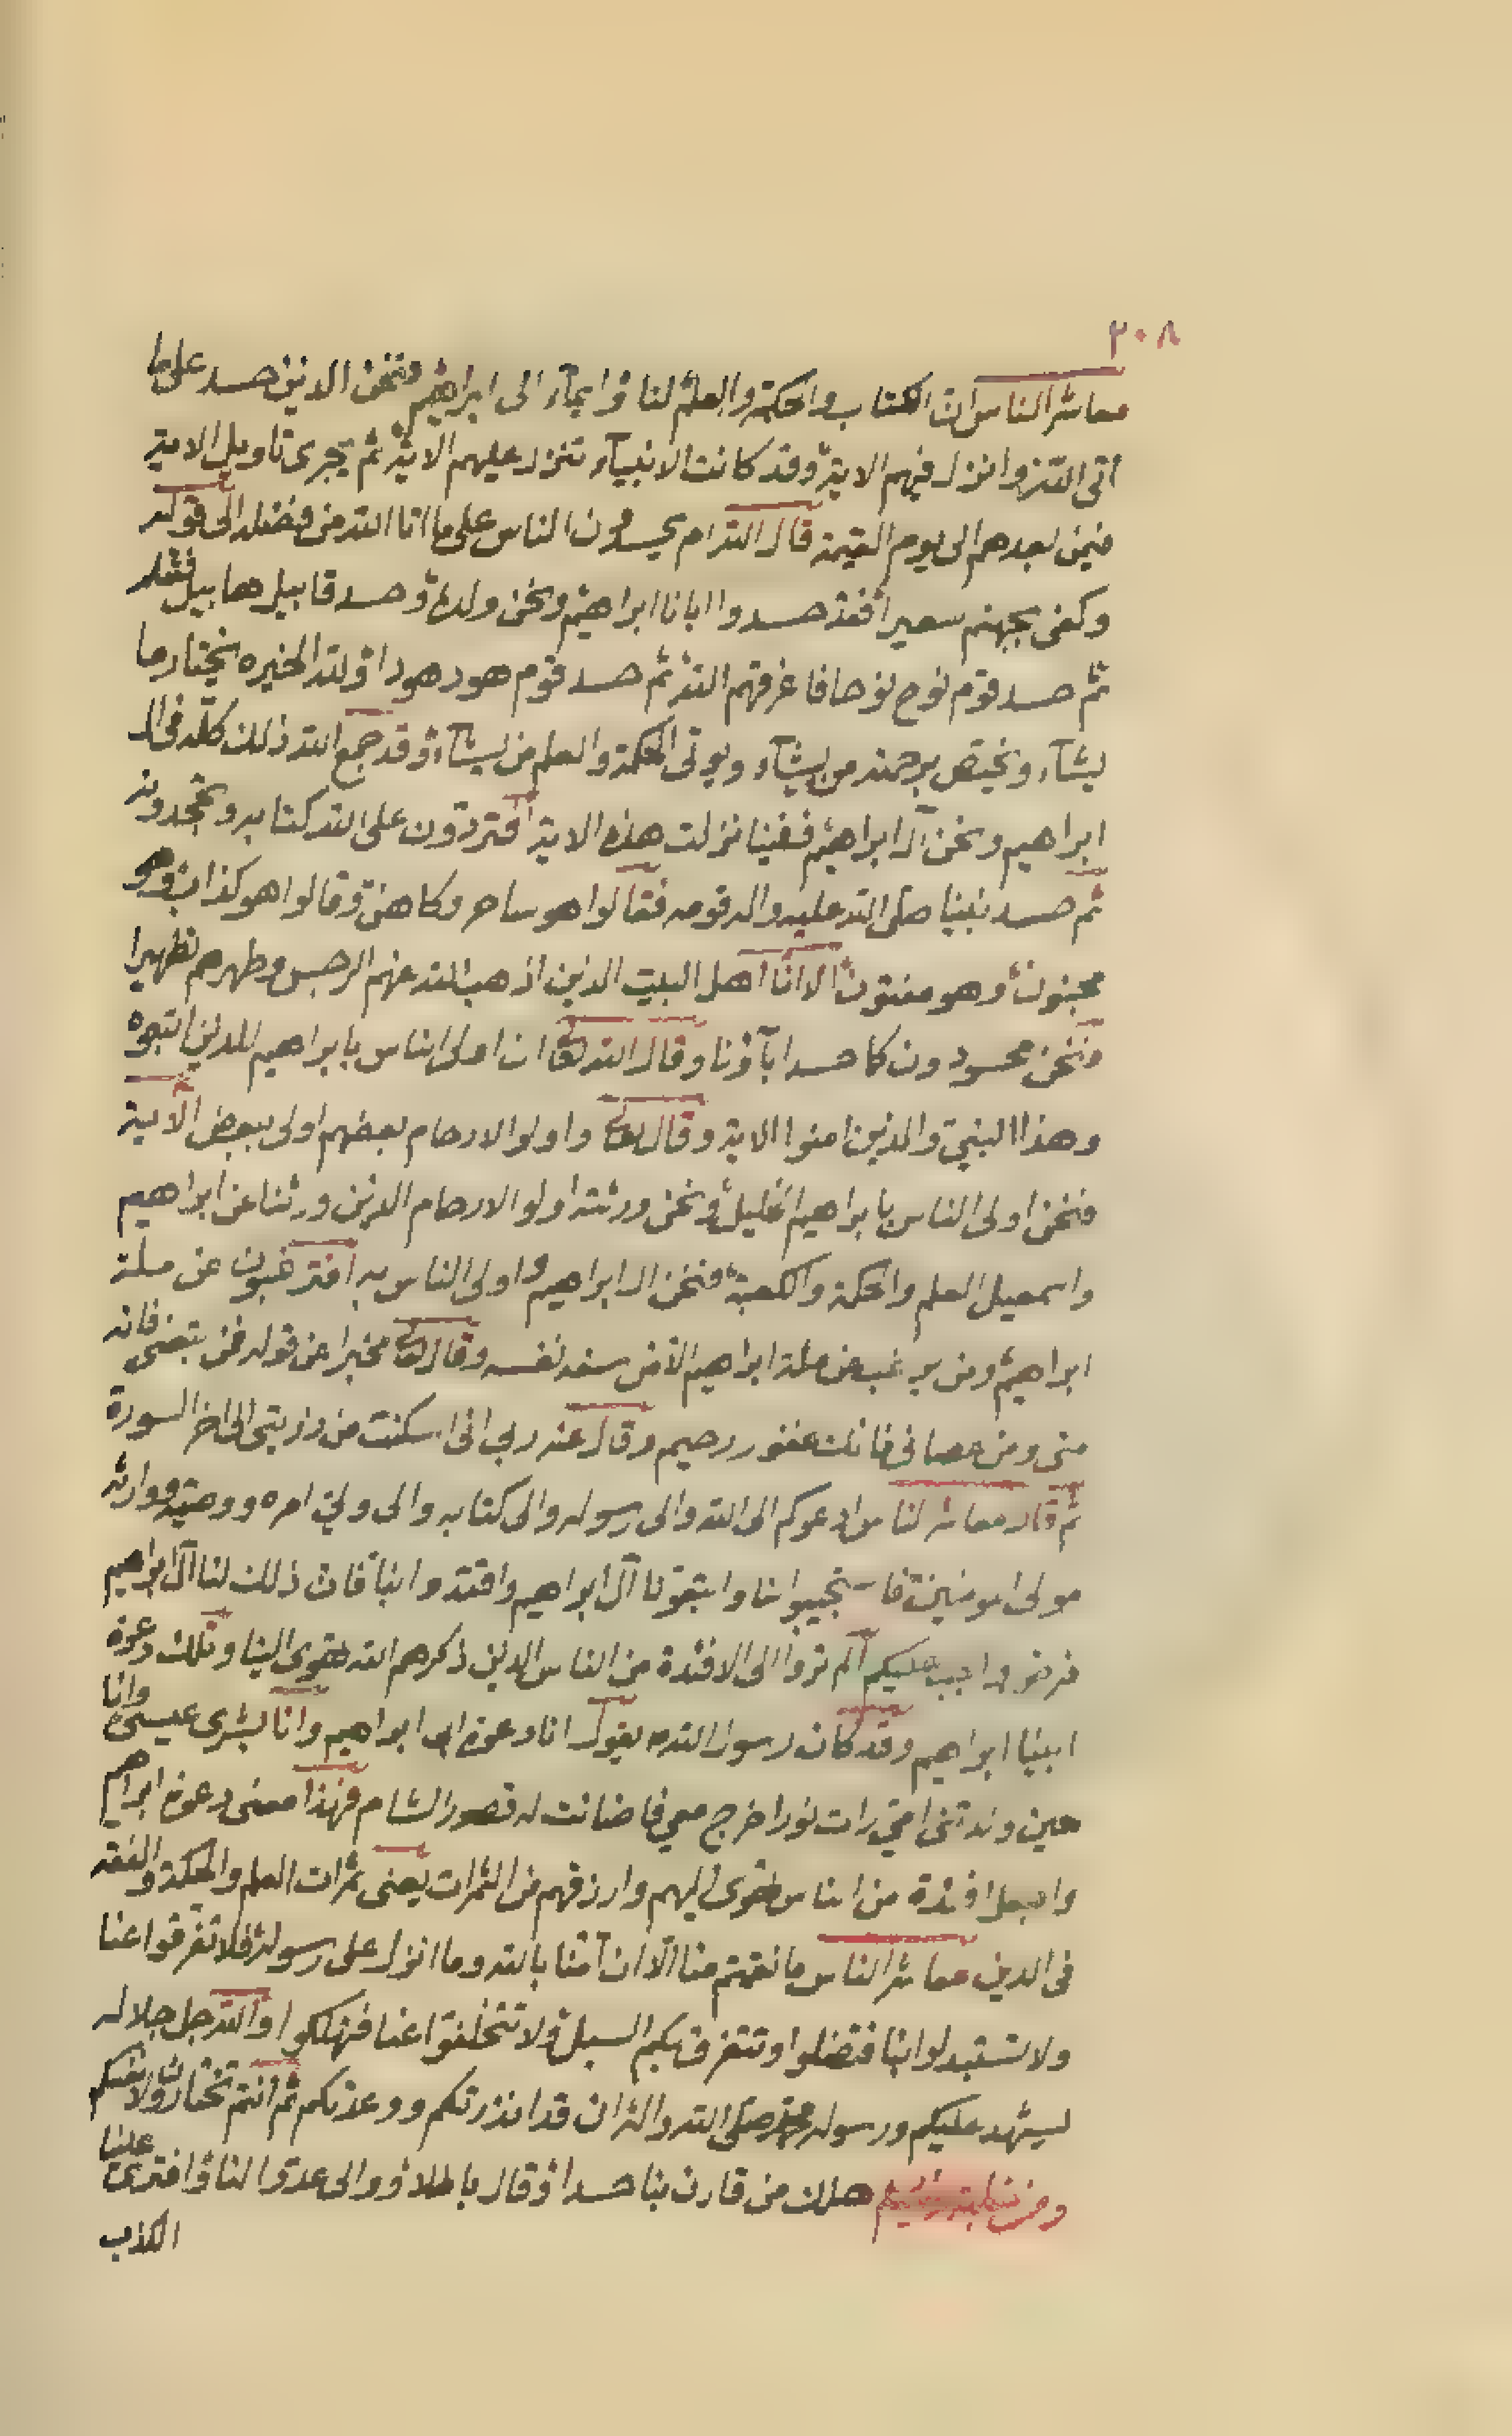 ٢٠٨
معاشر الناس ان الكتاب والحكمة والعلم لنا وايماء الى ابراهيم ونحن الذين حسد على ما
اتى الله وانزل فيهم الاية وقد كانت الانبياء تنزل عليهم الاية ثم يجرى تاويل الاية
فيمن بعدهم الى يوم القيمة قال الله ام يحسدون الناس على ما اتا الله من فضله الى قوله
وكفى بجهنم سعيرا فقد حسدوا ابانا ابراهيم ونحن ولده وحسد قابيل هابيل فقتله
ثم حسد قوم نوح نوحا فاغرقهم الله ثم حسد قوم هود هودا ولله الخيره يختار ما
يشآء ويختص برحمته من يشآء ويوتى الحكمة والعلم من يشآء وقد جمع الله ذلك كله فى ال
ابراهيم ونحن آل ابراهيم ففينا نزلت هذه الاية افتردون على الله كتابه وتجحدونه
ثم حسد نبينا صلى الله عليه واله قومه فقالوا هو ساحر وكاهن وقالوا هو كذاب وهو
مجنون وهو مفتون الا انا اهل البيت الذين اذهب الله عنهم الرجس وطهرهم تطهيرا
فنحن محسودون كما حسد ابآؤنا وقال الله تعا ان اولى الناس بابراهيم للذين اتبعوه
وهذا النبي والذين امنوا الاية وقال تعا واولوا الارحام بعضهم اولى ببعض الاية
فنحن اولى الناس بابراهيم الخليل ونحن ورثته اولوا الارحام الذين ورثنا عن ابراهيم
واسمعيل العلم والحكمة والكعبة فنحن ال ابراهيم واولى الناس به افترغبون عن ملة
ابراهيم ومن يرغب عن ملة ابراهيم الا من سفه نفسه وقال تعا مخبرا عن قوله فمن تبعنى فانه
منى ومن عصانى فانك غفور رحيم وقال عنه ربى انى اسكنت من ذريتى الى اخر السورة
ثم قال معاشر لناس ادعوكم الى الله والى رسوله والى كتابه والى ولي امره ووصيه ووارثه
مولى المومنين فاستجيبوا لنا واتبعونا آل ابراهيم واقتدوا بنا فان ذلك لنا آل ابراهيم
فرض واجب عليكم الم تروا الى الافئدة من الناس الذين ذكرهم الله تهوى الينا وتلك دعوة
ابينا ابراهيم وقد كان رسول الله يقول انا دعوة ابى ابراهيم وانا بشرى عيسى وانا
حين ولدتنى امي رات نورا خرج معي فاضائت له قصور الشام فهذا معنى دعوة ابراهيم
واجعل افئدة من الناس تهوى اليهم وارزقهم من الثمرات يعنى ثمرات العلم والحكمة والفقه
فى الدين معاشر الناس ما نقمتم منا الا ان آمنا بالله وما انزل على رسوله فلا تفرقوا عنا
ولا تستبدلوا بنا فتضلوا وتتفرق بكم السبل ولا تتخلفوا عنا فتهلكوا والله جل جلاله
يشهد عليكم ورسوله محمد صلى الله واله ان قد انذرتكم ووعدتكم ثم انتم تختارون ولا نفسكم
ومن خطبته هلك من قارن بنا حسدا وقال باطلا ووالى عدوا لنا وافترى علينا
الكذب